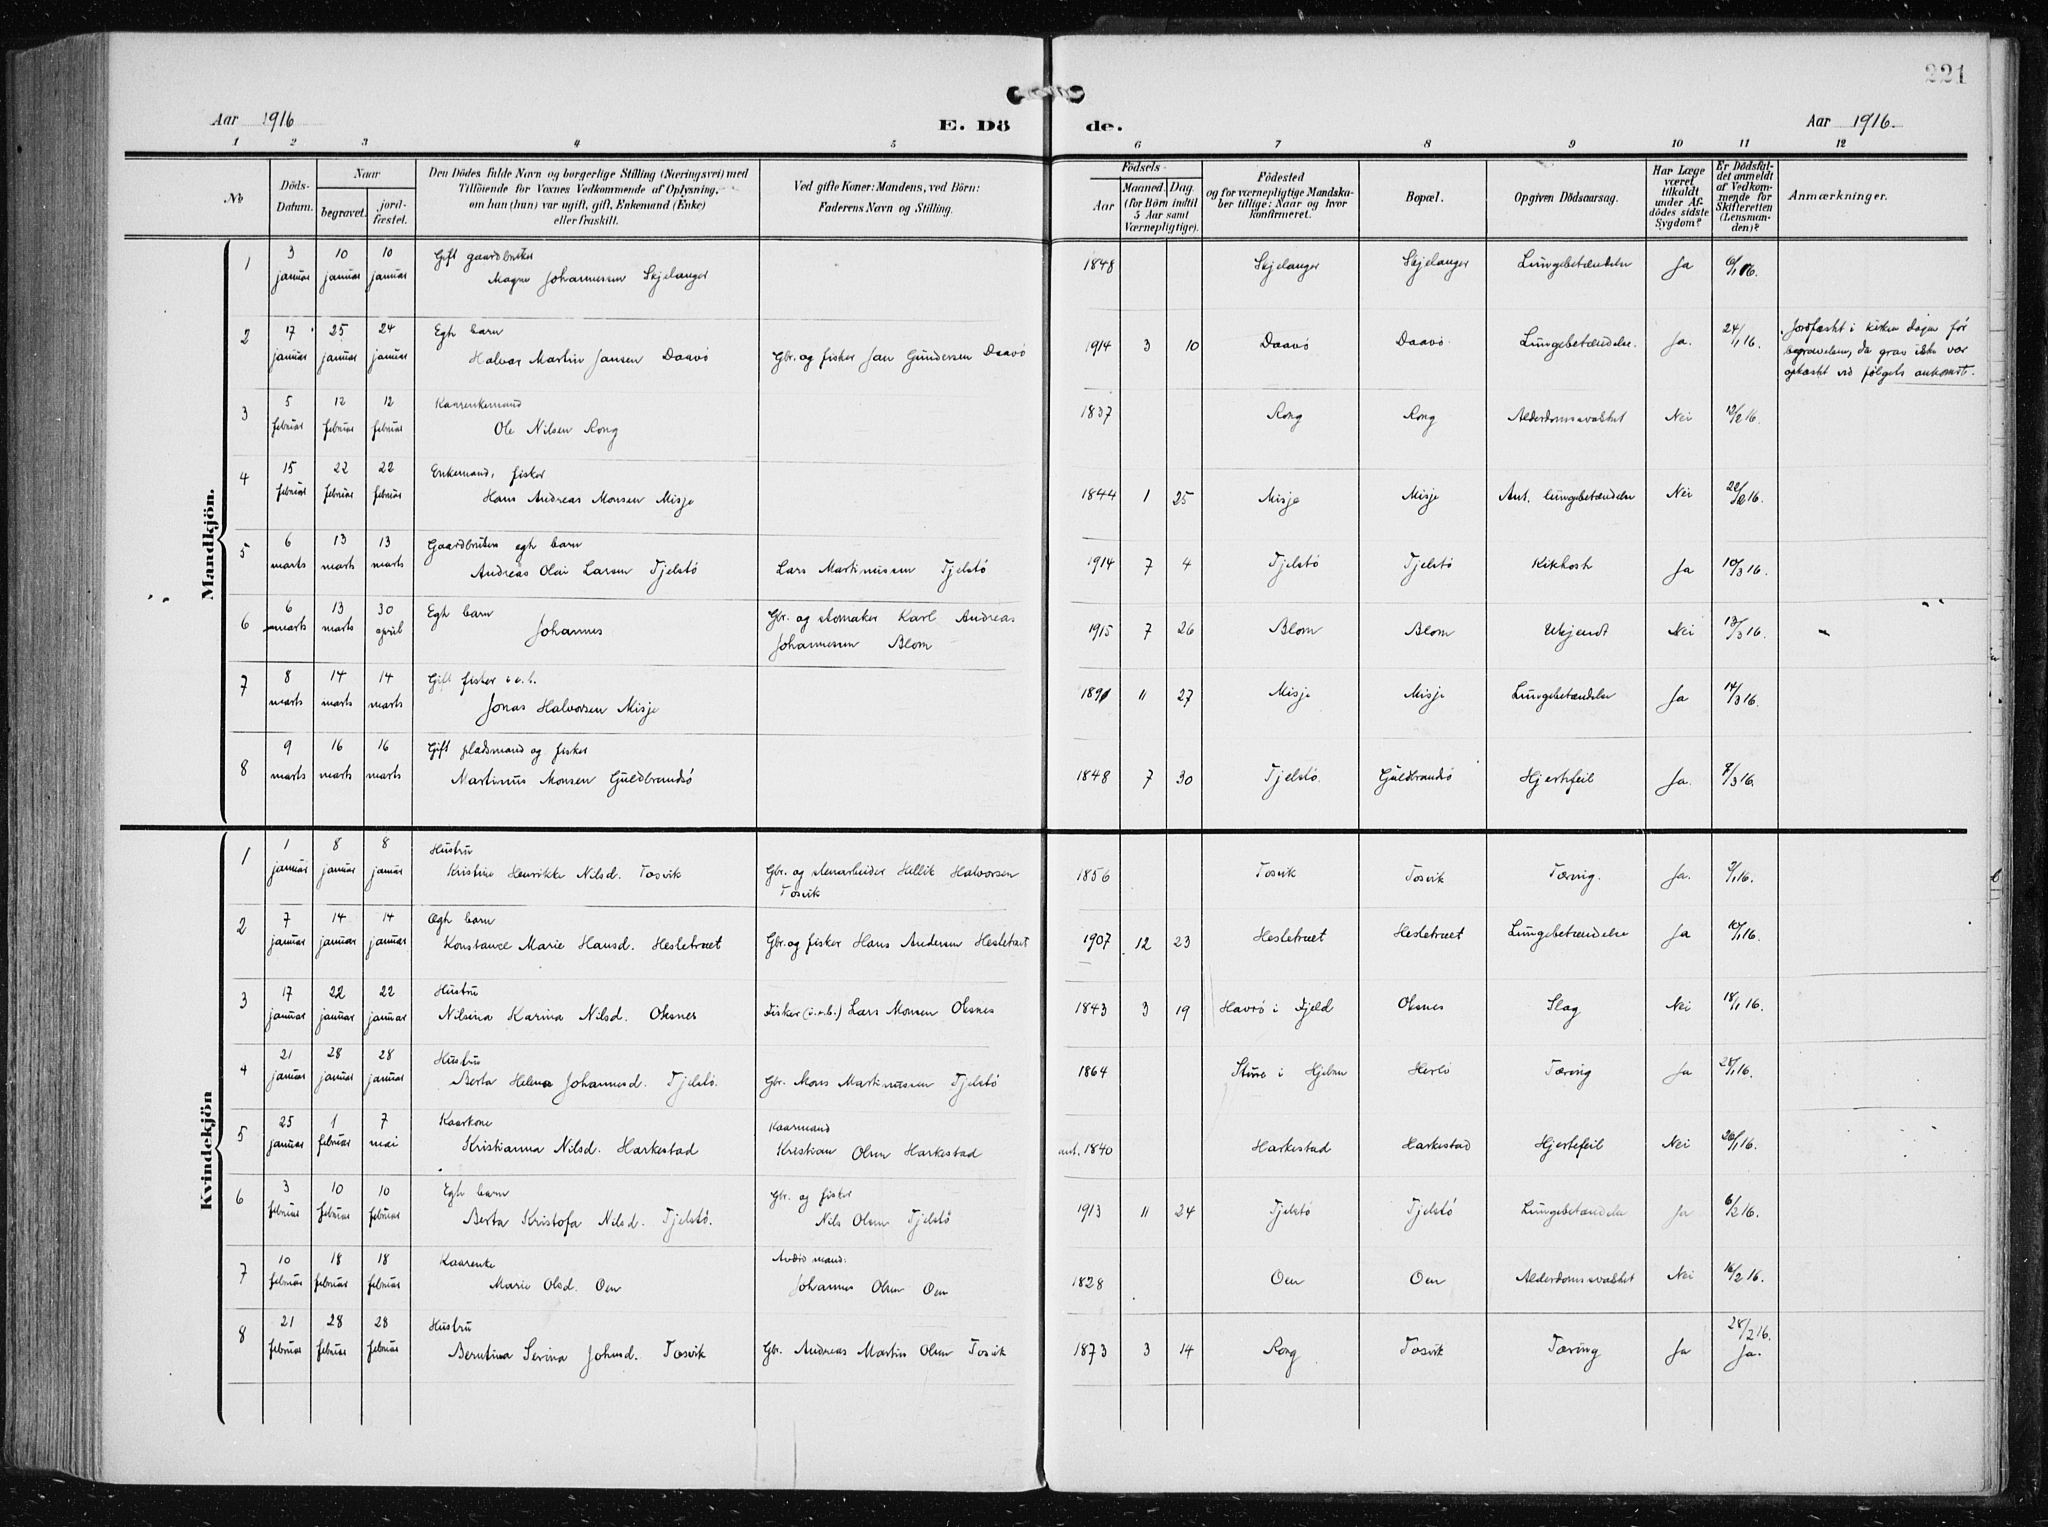 221
Aar 1916
E. Dö
de.
Aar 1916.
1 2 3 4 5 6 7 8 9 10 11 12
No
Döds-
Datum.
Naar
begravet.
jord-
fæstet.
Den Dödes fulde Navn og borgerlige Stilling (Næringsvei) med
Tilföiende for Voxnes Vedkommende af Oplysning,
om han (hun) var ugift, gift, Enkemand (Enke)
eller fraskilt.
Ved gifte Koner: Mandens, ved Börn:
Faderens Navn og Stilling.
Födsels-
Aar
Maaned. Dag.
(for Börn indtil
5 Aar samt
Værnepligtige).
Födested
og for værnepligtige Mandska-
ber tillige: Naar og hvor
konfirmeret.
Bopæl.
Opgiven Dödsaarsag.
Har Læge
været
tilkaldt
under Af-
dödes sidste
Sygdom?
Er Dödsfal-
det anmeldt
af Vedkom-
mende for
Skifteretten
(Lensman-
den)?
Anmærkninger.
Mandkjön.
1 3 januar 10 januar 10 januar Gift gaardbruker
Magne Johannessen Skjelanger 1848 Skjelanger Skjelanger Lungebetændelse Ja 6/1 16.
2 17 januar 25 januar 24 januar Egte barn
Halvar Martin Jansen Daavö Gbr. og fisker Jan Gundersen Daavö 1914 3 10 Daavö Daavö Lungebetændelse. Ja. 24/1 16.
Jordfæstet i kirken dagen før
begravelsen, da grav ikke var
opkastet ved følgets ankomst.
3 5 februar 12 februar 12 februar Kaarenkemand
Ole Nilsen Rong 1837 Rong Rong Alderdomssvakhet Nei 12/2 16.
4 15 februar 22 februar 22 februar Enkemand, fisker
Hans Andreas Monsen Misje 1844 1 25 Misje Misje Ant. lungebetændelse Nei 22/2 16.
5 6 marts 13 marts 13 marts Gaardbruker egte barn
Andreas Olai Larsen Tjelstö Lars Martinussen Tjelstö 1914 7 4 Tjelstö Tjelstö Kikhoste Ja 10/3 16.
6 6 marts 13 marts 30 april Egte barn
Johannes Gbr. og skomaker Karl Andreas
Johannessen Blom 1915 7 26 Blom Blom Ukjendt Nei 13/3 16.
7 8 marts 14 marts 14 marts Gift fisker u.v.b.
Jonas Halvorsen Misje 1891 11 27 Misje Misje Lungebetændelse Ja 14/3 16.
8 9 marts 16 marts 16 marts Gift pladsmand og fisker
Martinus Monsen Guldbrandsö 1848 7 30 Tjelstö. Guldbrandsö Hjertefeil Ja. 9/3 16.
Kvindekjön
1 1 januar 8 januar 8 januar Hustru
Kristine Henrikke Nilsd. Tosvik Gbr. og stenarbeider Hellik Halvorsen
Tosvik 1856 Tosvik Tosvik Tæring. Ja. 3/1 16.
2 7 januar 14 januar 14 januar Egte barn
Konstance Marie Hansd. Hesletræet Gbr. og fisker Hans Andersen Hesletræet 1907 12 23 Hesletræet Hesletræet Lungebetændelse Ja 10/1 16.
3 17 januar 22 januar 22 januar Hustru
Nilsina Karina Nilsd. Oksnes Fisker (u.v.b.) Lars Monsen Oksnes 1843 3 19 Havrö i Fjeld Oksnes Slag Nei 18/1 16.
4 21 januar 28 januar 28 januar Hustru
Berta Helena Johannesd. Tjelstö. Gbr. Mons Martinussen Tjelstö 1864 Sture i Hjelme Herlö Tæring Ja 28/1 16.
5 25 januar 1 februar 7 mai Kaarkone
Kristianna Nilsd. Harkestad Kaarmand
Kristian Olsen Harkestad ant. 1840 Harkestad Harkestad Hjertefeil Nei 26/1 16.
6 3 februar 10 februar 10 februar Egte barn
Berta Kristofa Nilsd. Tjelstö. Gbr. og fisker
Nils Olsen Tjelstö 1913 11 24 Tjelstö Tjelstö Lungebetændelse Ja 6/2 16.
7 10 februar 18 februar 18 februar Kaarenke
Marie Olsd. Oen Avdöd mand:
Johannes Olsen Oen 1828 Oen Oen Alderdomssvakhet Nei 16/2 16.
8 21 februar 28 februar 28 februar Hustru
Berntina Serina Johnsd. Tosvik Gbr. Andreas Martin Olsen Tosvik 1873 3 14 Rong Tosvik Tæring Ja 28/2 16.
Ja.